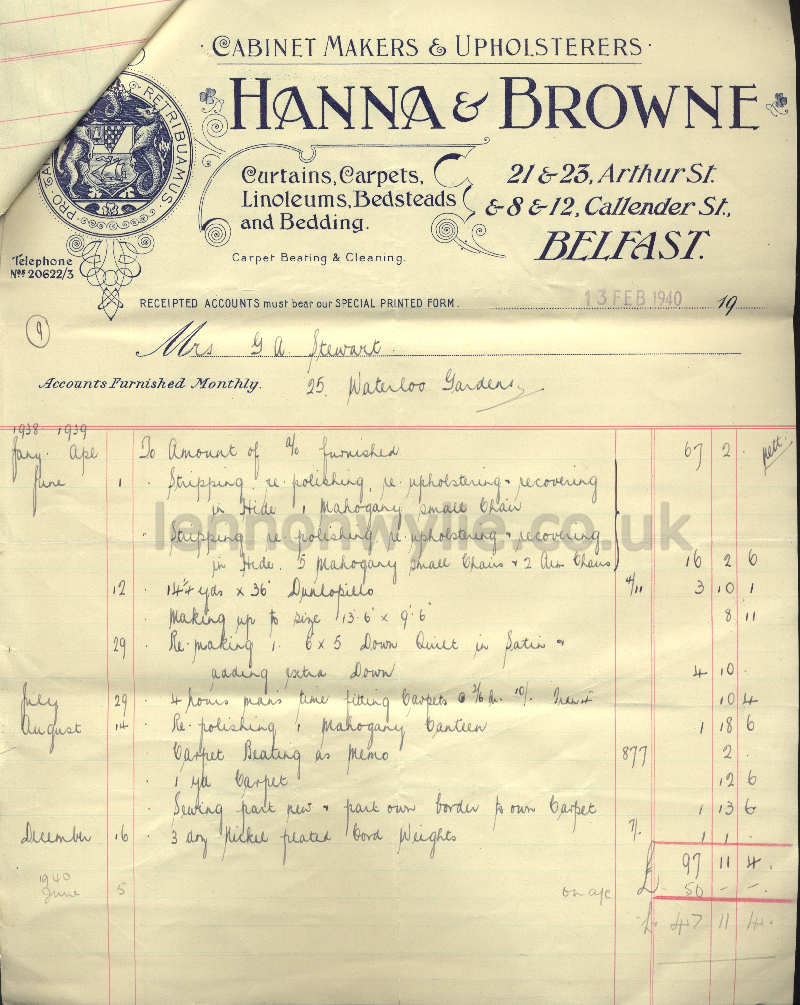 CABINET MAKERS & UPHOLSTERERS
HANNA & BROWNE
PRO RETRIBUAMUS
Curtains, Carpets,
Linoleums, Bedsteads
and Bedding.
Carpet Beating & Cleaning.
21 & 23, Arthur St.
& 8 & 12, Callender St.,
BELFAST.
Telephone
Nos 20622/3
RECEIPTED ACCOUNTS must bear our SPECIAL PRINTED FORM.
13 FEB 1940 19
9
Mrs G A Stewart
Accounts Furnished Monthly. 25 Waterloo Gardens
1938 1939
Jany Apl To Amount of a/c furnished 67 2 . nett
June 1 . Stripping, re-polishing, re-upholstering & recovering
in Hide 1 Mahogany small Chair
Stripping re-polishing re-upholstering & recovering
in Hide. 5 Mahogany small Chairs & 2 Arm Chairs 16 2 6
12 . 14 1/4 yds x 36" Dunlopillo 4/11 3 10 1
Making up to size 13'6" x 9'6" 8 11
29 Re-making 1. 6 x 5 Down Quilt in Satin &
adding extra Down 4 10 .
July 29 . 4 hours man's time fitting Carpets @ 2/6 hr. 10/. 10 4
August 14 . Re-polishing 1 Mahogany Canteen 1 18 6
Carpet Beating as Memo 877 2 .
. 1 yd Carpet 12 6
. Sewing part new & part own border to own Carpet 1 13 6
December 16 . 3 doz Nickel plated Cord Weights 7/. 1 1 .
£ 97 11 4.
1940
June 5 on a/c 50 - -.
£ 47 11 4.
lennonwylie.co.uk